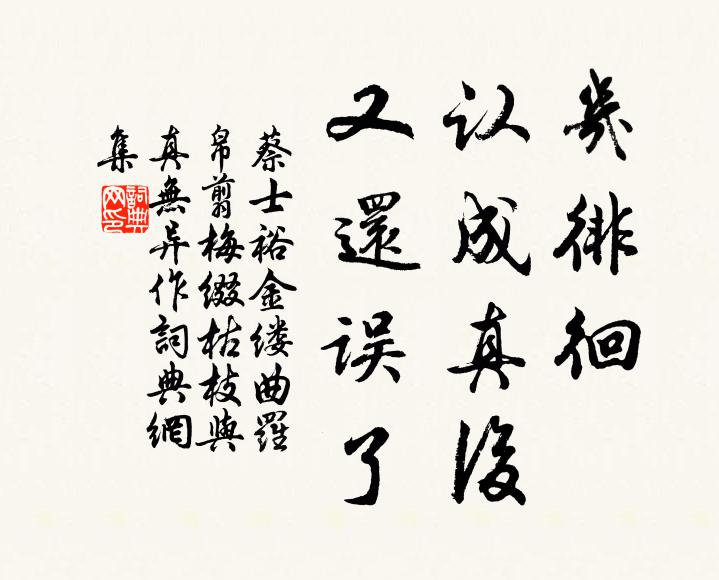 幾徘徊
认成真後
又還误了
蔡士裕金缕曲羅
帛翦梅缀枯枝與
真無异作詞典網
集
詞典
网印